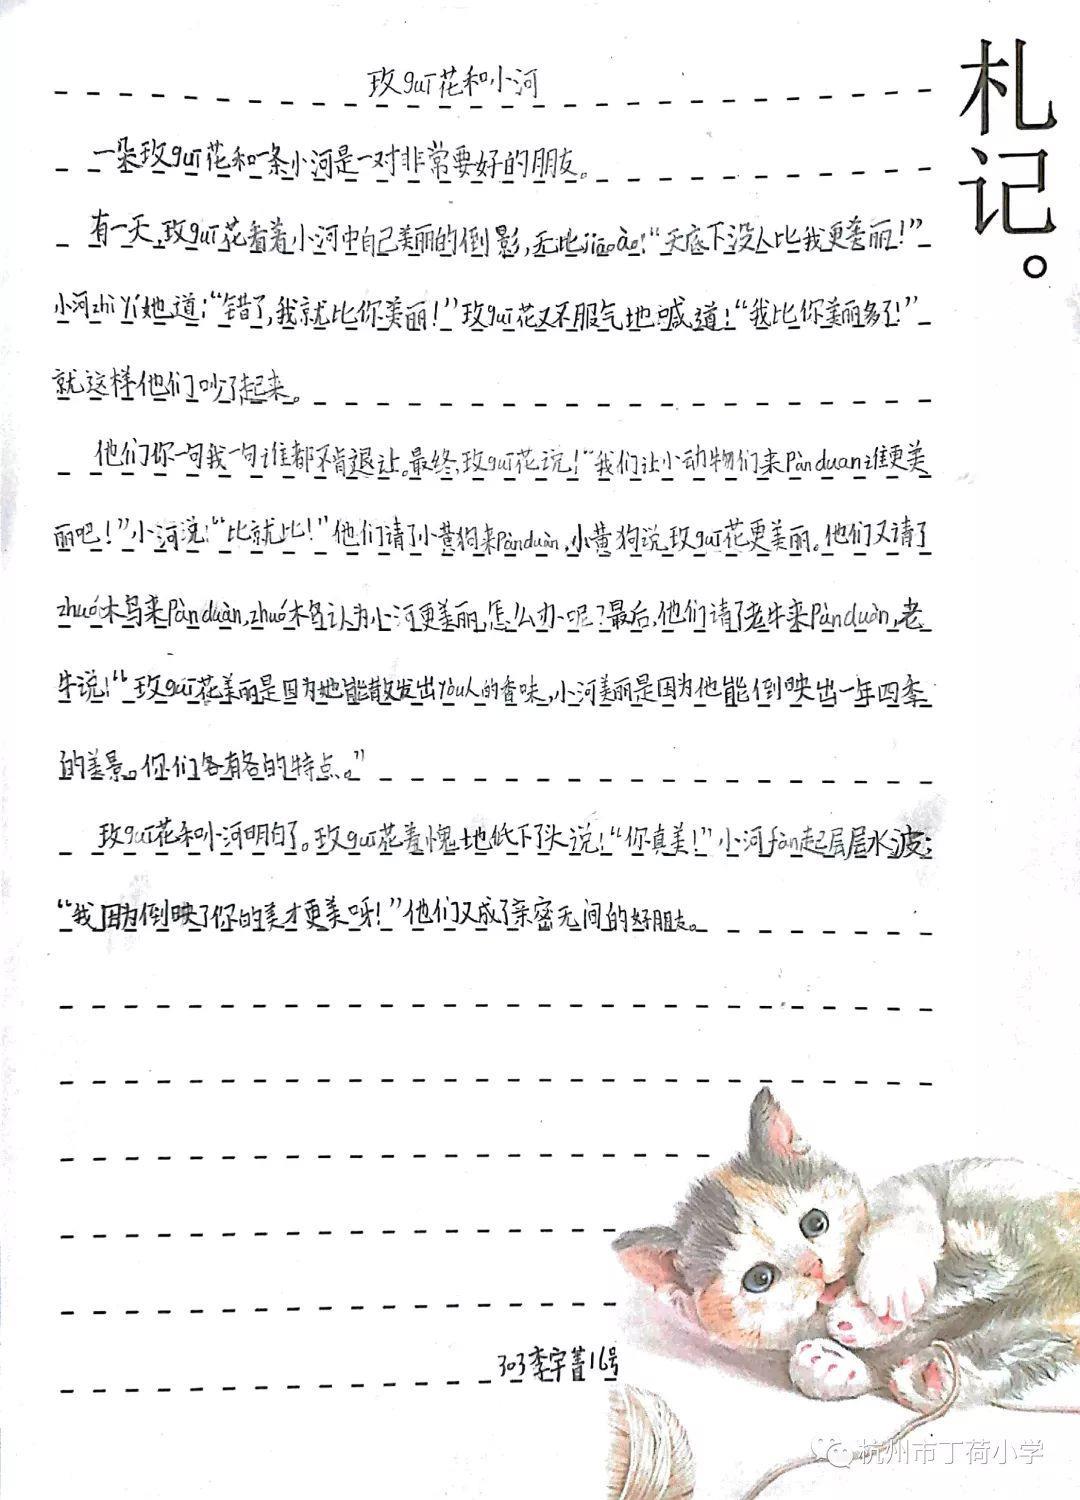 札记。
玫guī花和小河
一朵玫guī花和一条小河是一对非常要好的朋友。
有一天,玫guī花看着小河中自己美丽的倒影,无比jiāo ào:“天底下没人比我更美丽!”
小河zhì yí她道:“错了,我就比你美丽!”玫guī花又不服气地喊道:“我比你美丽多了!”
就这样他们吵了起来。
他们你一句我一句谁都不肯退让。最终,玫guī花说:“我们让小动物们来Pàn duàn谁更美
丽吧!”小河说:“比就比!”他们请了小黄狗来Pànduàn,小黄狗说玫guī花更美丽。他们又请了
zhuó木鸟来Pànduàn,zhuó木鸟认为小河更美丽,怎么办呢?最后,他们请了老牛来Pànduàn,老
牛说:“玫guī花美丽是因为她能散发出Yòu人的香味,小河美丽是因为他能倒映出一年四季
的美景。你们各有各的特点。”
玫guī花和小河明白了。玫guī花羞愧地低下了头说:“你真美!”小河fàn起层层水波:
“我因为倒映了你的美才更美呀!”他们又成了亲密无间的好朋友。
303李宇菁16号
杭州市丁荷小学